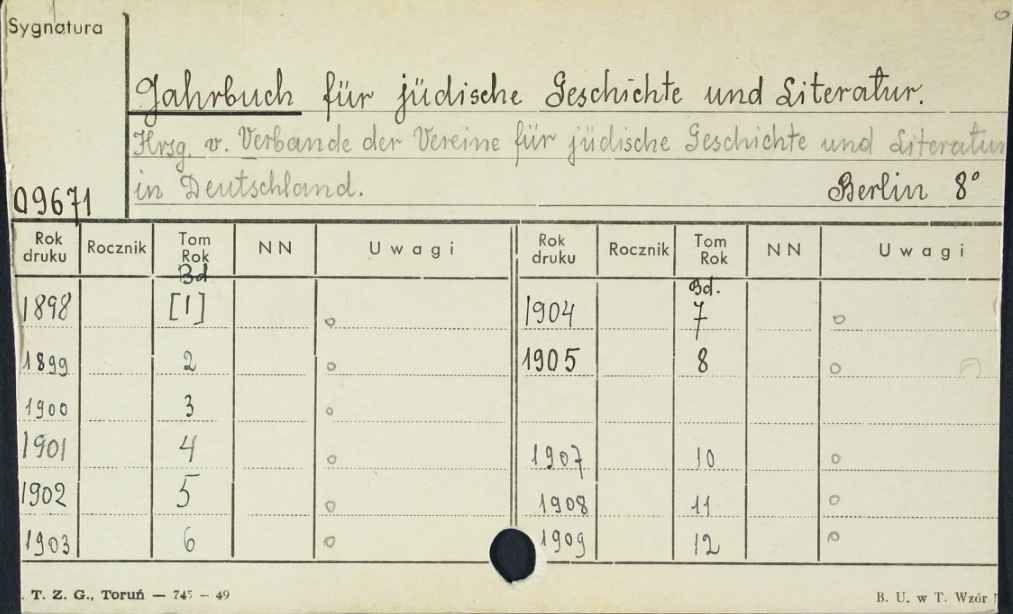 Sygnatura
Jahrbuch für jüdische Geschichte und Literatur.
Hrsg. v. Verbande der Vereine für jüdische Geschichte und Literatur
in Deutschland. Berlin 8°
09671
Rok druku Rocznik Tom Rok NN Uwagi Rok druku Rocznik Tom Rok NN Uwagi
Bd Bd.
1898 [1] 1904 7
1899 2 1905 8
1900 3
1901 4 1907 10
1902 5 1908 11
1903 6 1909 12
. T. Z. G., Toruń — 745 — 49 B. U. w T. Wzór